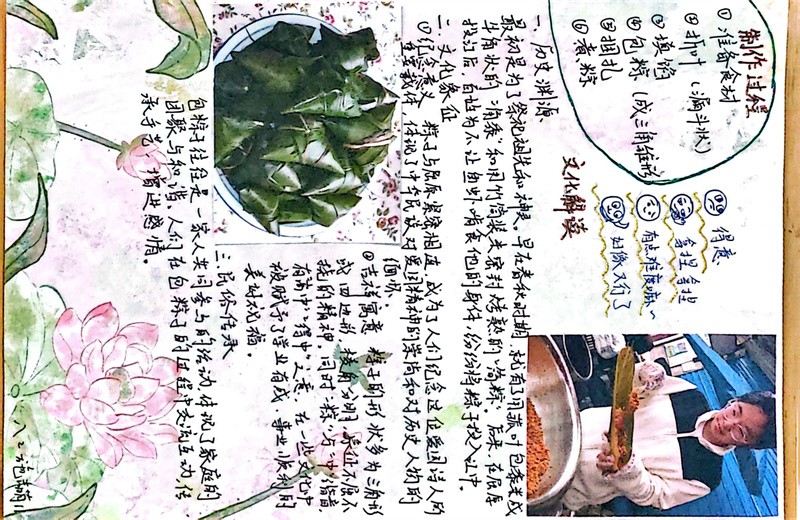 制作过程
①准备食材
②折叶(漏斗状)
③填馅
④包粽(成三角锥形)
⑤捆扎
⑥煮粽
得意
拿捏拿捏
有点难度嘛~
文化解读
一、历史渊源
最初是为了祭祀祖先和神灵。早在春秋时期,就有了用菰叶包黍米成
牛角状的“角黍”和用竹筒装米密封烤熟的“筒粽”。后来,在屈原
投江后,百姓为不让鱼虾啃食他的身体,纷纷将粽子投入江中。
二、文化象征
①纪念意义 粽子与屈原紧密相连,成为了人们纪念这位爱国诗人的
重要载体,体现了中华民族对爱国精神的崇尚和对历史人物的
缅怀。
②吉祥寓意 粽子的形状多为三角形
或四边形,棱角分明,象征不屈不
挠的精神。同时“粽”与“中”谐音,
有“高中”“得中”之意,在一些文化中
被赋予了学业有成、事业顺利的
美好祝福。
三、民俗传承
包粽子往往是一家人共同参与的活动,体现了家庭的
团聚与和谐,人们在包粽子的过程中交流互动,传
承手艺,增进感情。